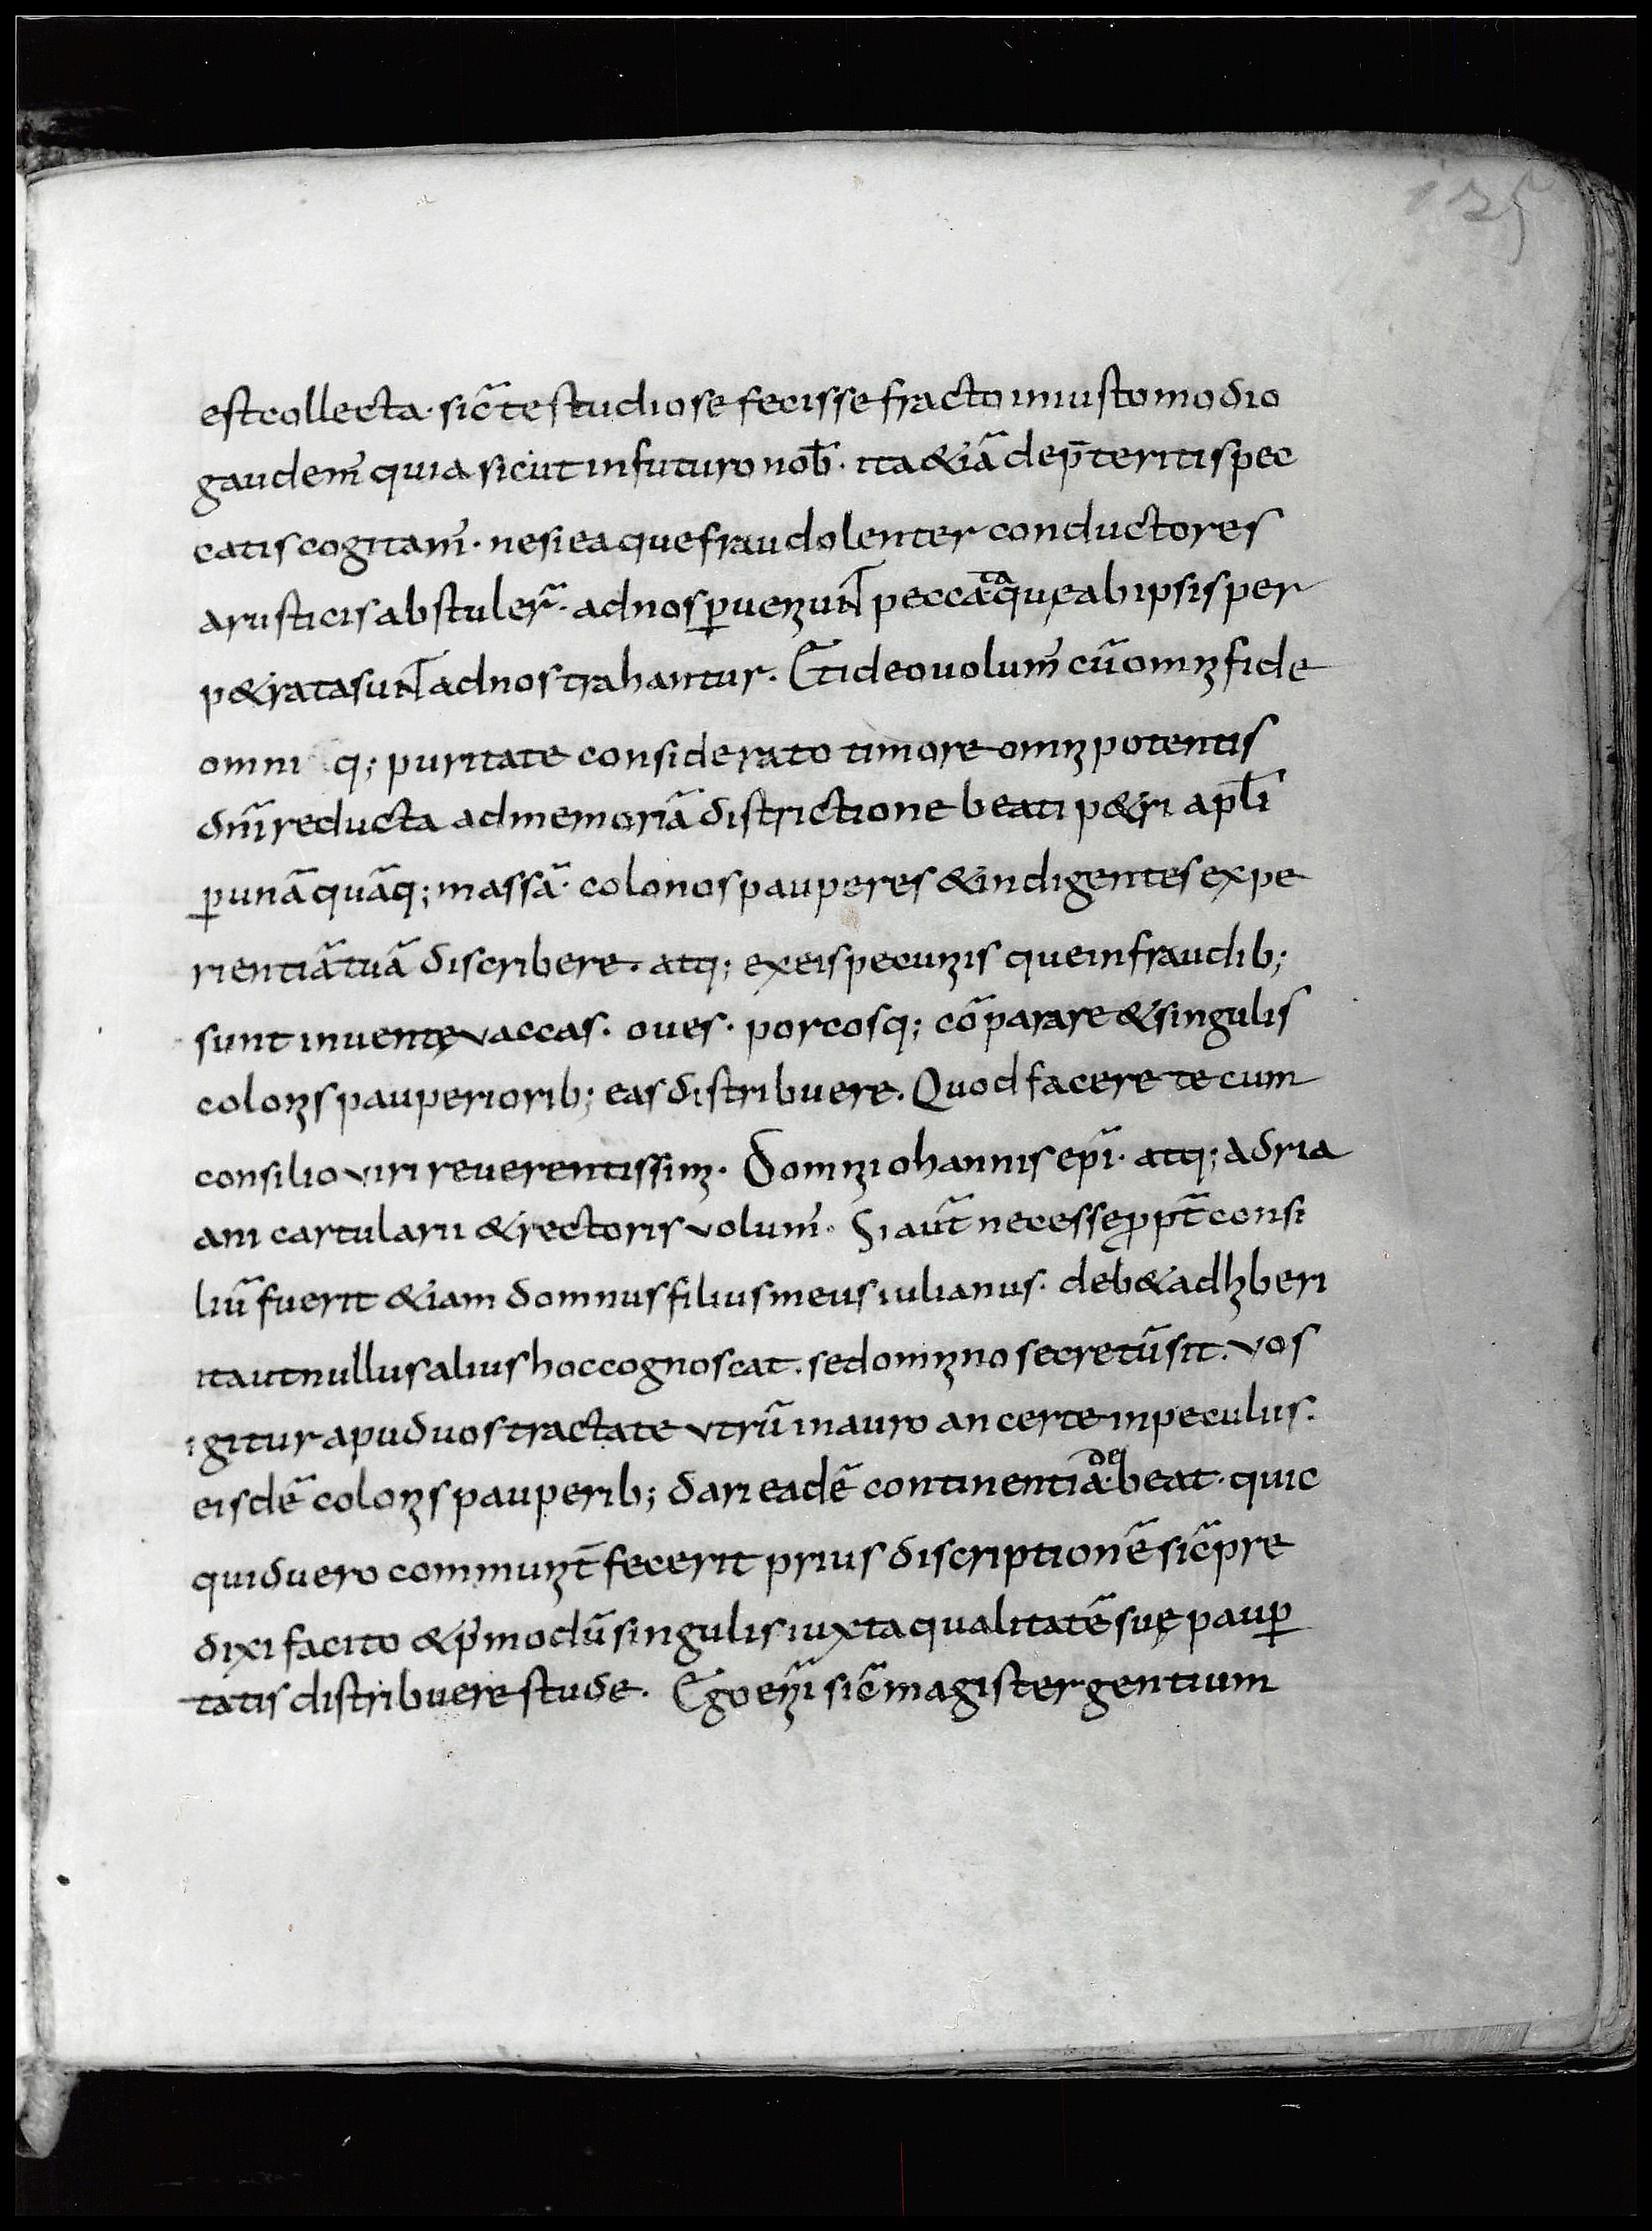 135
est collecta · sic̄ te studiose fecisse fracto iniusto modio
gaudem̄ quia sicut in futuro nob̄ · ita &iā de p̄teritis pec
catis cogitam̄ · ne si ea que fraudolenter conductores
a rusticis abstuler̄ · ad nos ꝑuenerunt peccata quę ab ipsis per
p&rata sunt ad nos trahantur. Et ideo volum̄ cū omni fide
omni q; puritate considerato timore omnipotentis
dn̄i reducta ad memoriā districtione beati p&ri apłi
ꝑ unā quāq; massā · colonos pauperes & indigentes expe
rientiā tuā discribere · atq; ex eis pecuniis que in fraudib;
sunt inventę vaccas · oves · porcosq; cōparare & singulis
colonis pauperiorib; eas distribuere. Quod facere te cum
consilio viri reverentissimi · domni iohannis epī · atq; adria
ani cartularii & rectoris volum̄ · Si aut̄ necesse ꝓpt̄ consi
liū fuerit &iam domnus filius meus iulianus · deb& adhiberi
ita ut nullus alius hoc cognoscat · sed omnino secretū sit · vos
igitur apud vos tractate utrū in auro an certe in peculiis ·
eisdē colonis pauperib; dari eadē continentia debeat · quic
quid vero commun̄it fecerit prius discriptionē sic̄ pre
dixi facito & p̄modū singulis iuxta qualitatē suę pauꝑ
tatis distribuere stude. Ego eni sic̄ magister gentium